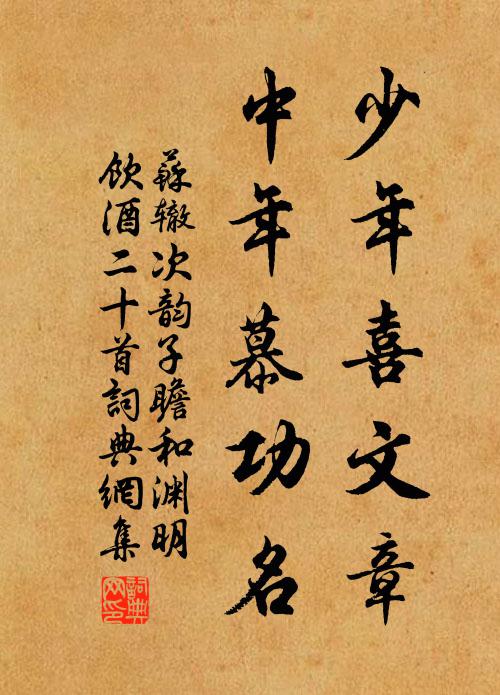 少年喜文章
中年慕功名
蘇辙次韵子瞻和渊明
飲酒二十首詞典網集
詞典網印